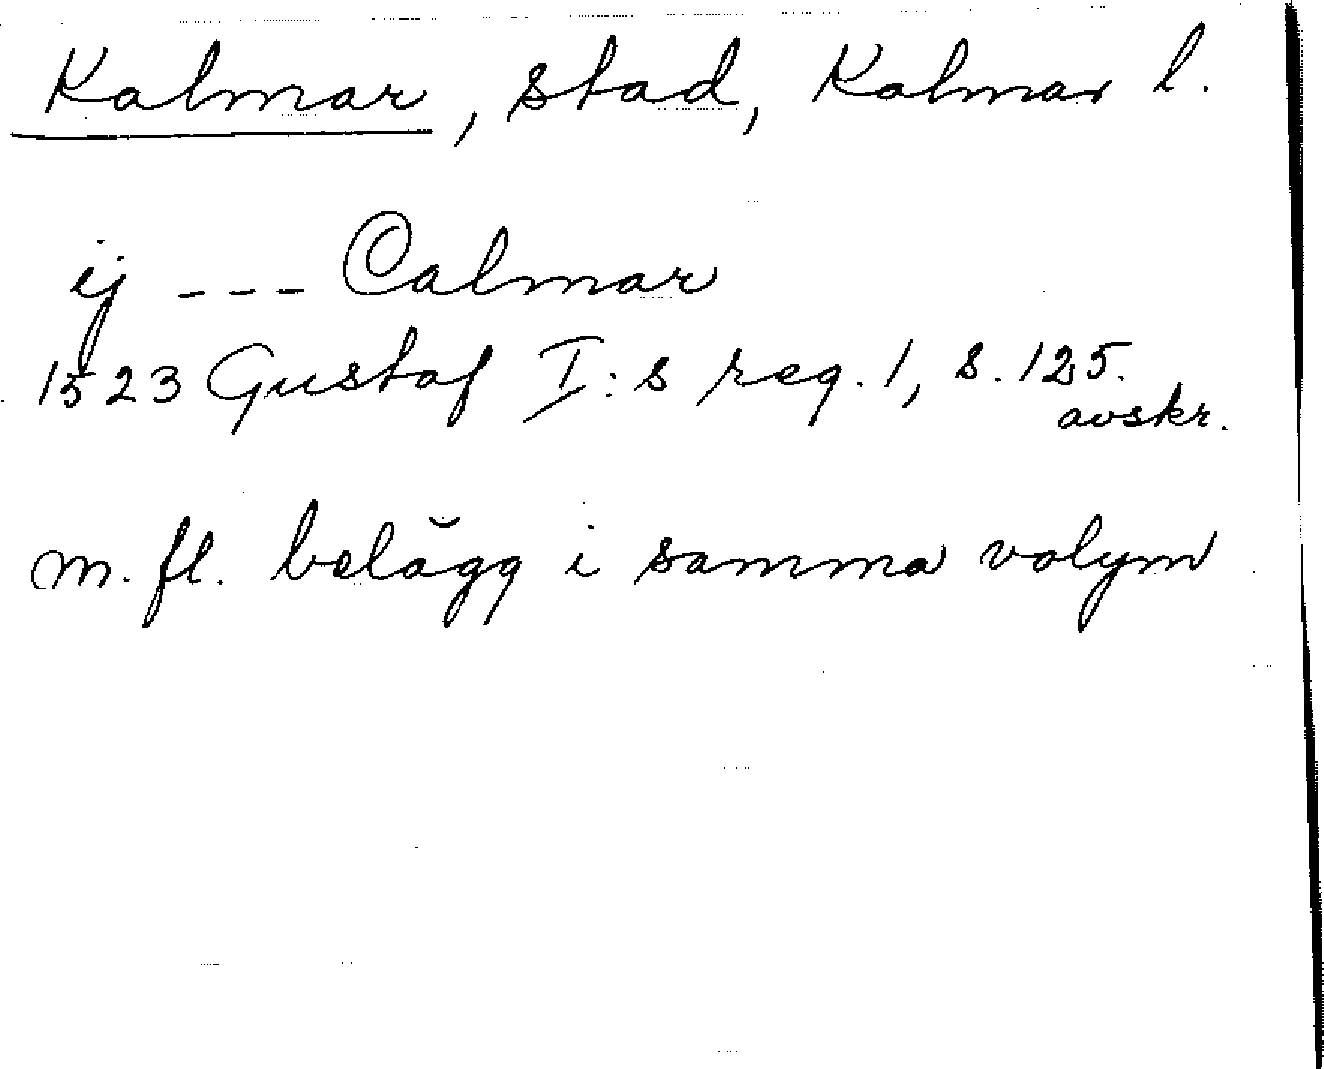 Kalmar, stad, Kalmar l.
ij --- Calmar
1523 Gustaf I:s reg. 1, s. 125.
avskr.
m. fl. belägg i samma volym